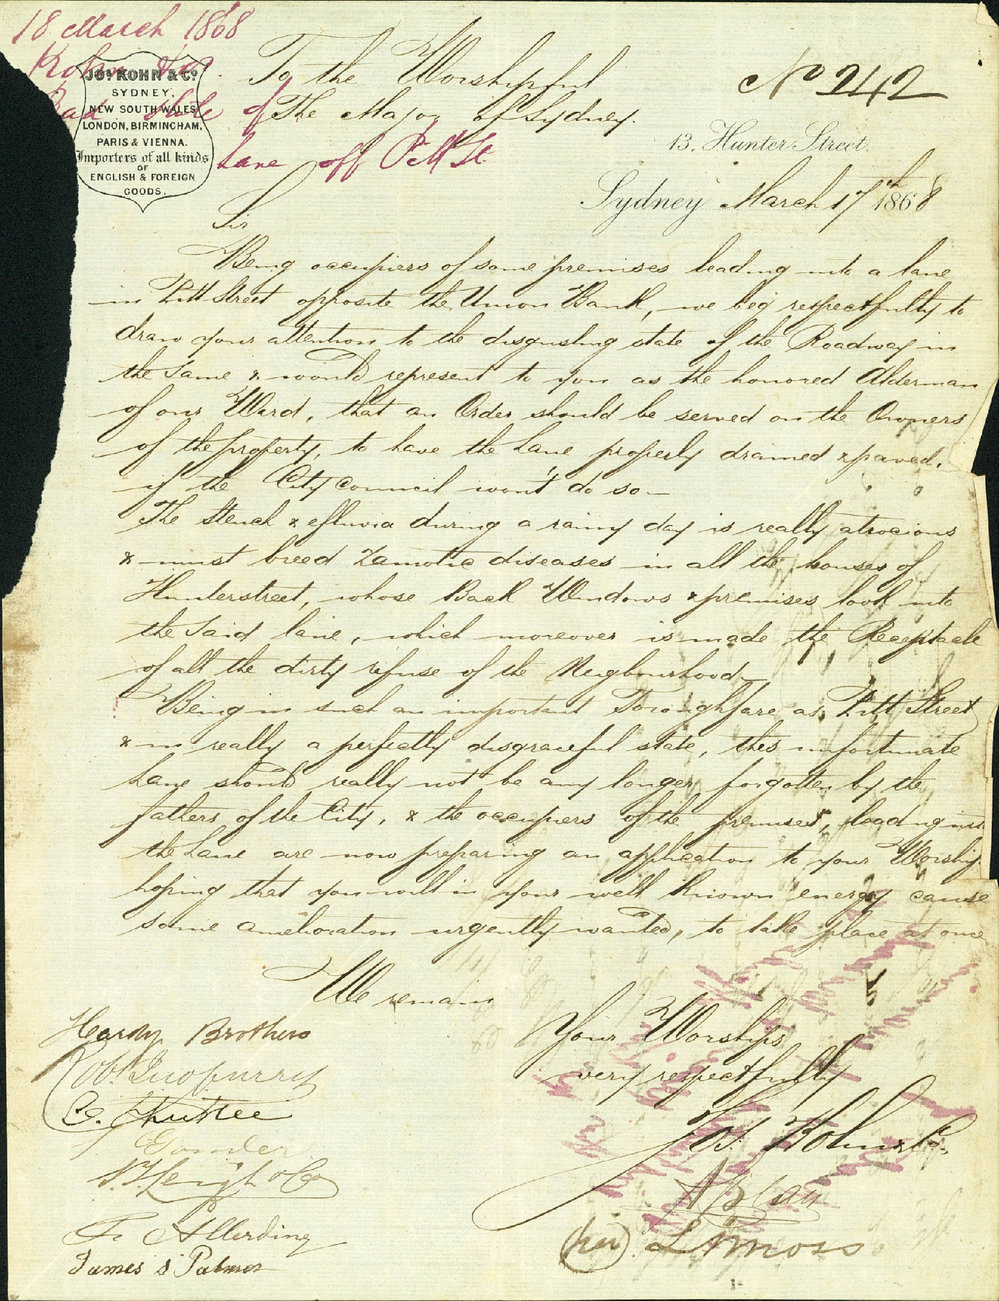 18 March 1868
Kohn & Co.
Bad state of
Lane off P.M. St
JOS. KOHN & CO.
SYDNEY,
NEW SOUTH WALES
LONDON, BIRMINGHAM,
PARIS & VIENNA.
Importers of all kinds
OF
ENGLISH & FOREIGN
GOODS.
To the Worshipful
The Mayor of Sydney.
No 242
13, Hunter Street,
Sydney March 17th 1868
Sir
Being occupiers of some premises leading into a lane
in Pitt Street opposite the Union Bank, we beg respectfully to
draw your attention to the disgusting state of the Roadway in
the same & would represent to you as the honored Alderman
of our Ward, that an Order should be served on the Owners
of the property, to have the Lane properly drained & paved,
if the City Council won't do so
The Stench & efluvia during a rainy day is really atrocious
& must breed Zamotic diseases in all the houses of
Hunterstreet, whose Back Windows & premises look into
the said lane, which moreover is made the Receptacle
of all the dirty refuse of the Neigbourhood
Being in such an important Thoroughfare, as Pitt Street
& in really a perfectly disgraceful state, this unfortunate
Lane should really not be any longer forgotten by the
fathers of the City, & the occupiers of the premises, leading into
the Lane are now preparing an application to your Worship
hoping that you will in your well known energy cause
some amelioration urgently wanted, to take place at once
We remain
Your Worships
very respectfully
Jos. Kohn & Co.
Hardy Brothers
Leigh & Co
F. Allerding
James S Palmer
(per) L. Amoss